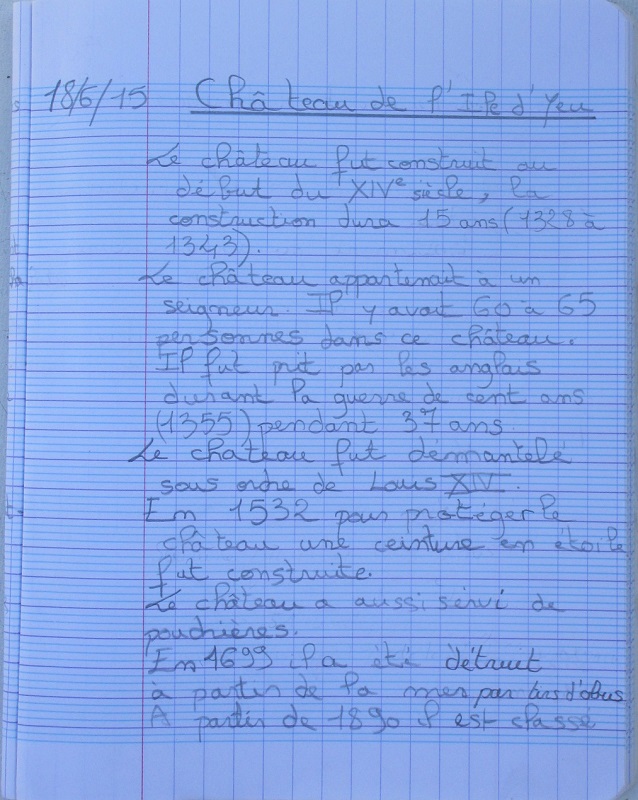 18/6/15 Château de l'Ile d'Yeu
Le château fut construit au
début du XIVe siècle, la
construction dura 15 ans (1328 à
1343).
Le château appartenait à un
seigneur. Il y avait 60 à 65
personnes dans ce château.
Il fut prit par les anglais
durant la guerre de cent ans
(1355) pendant 37 ans.
Le château fut démantelé
sous ordre de Louis XIV.
En 1532 pour protéger le
château une ceinture en étoile
fut construite.
Le château a aussi servi de
poudrières.
En 1699 l a été détruit
à partir de la mer par tirs d'obus
A partir de 1890 l est classé